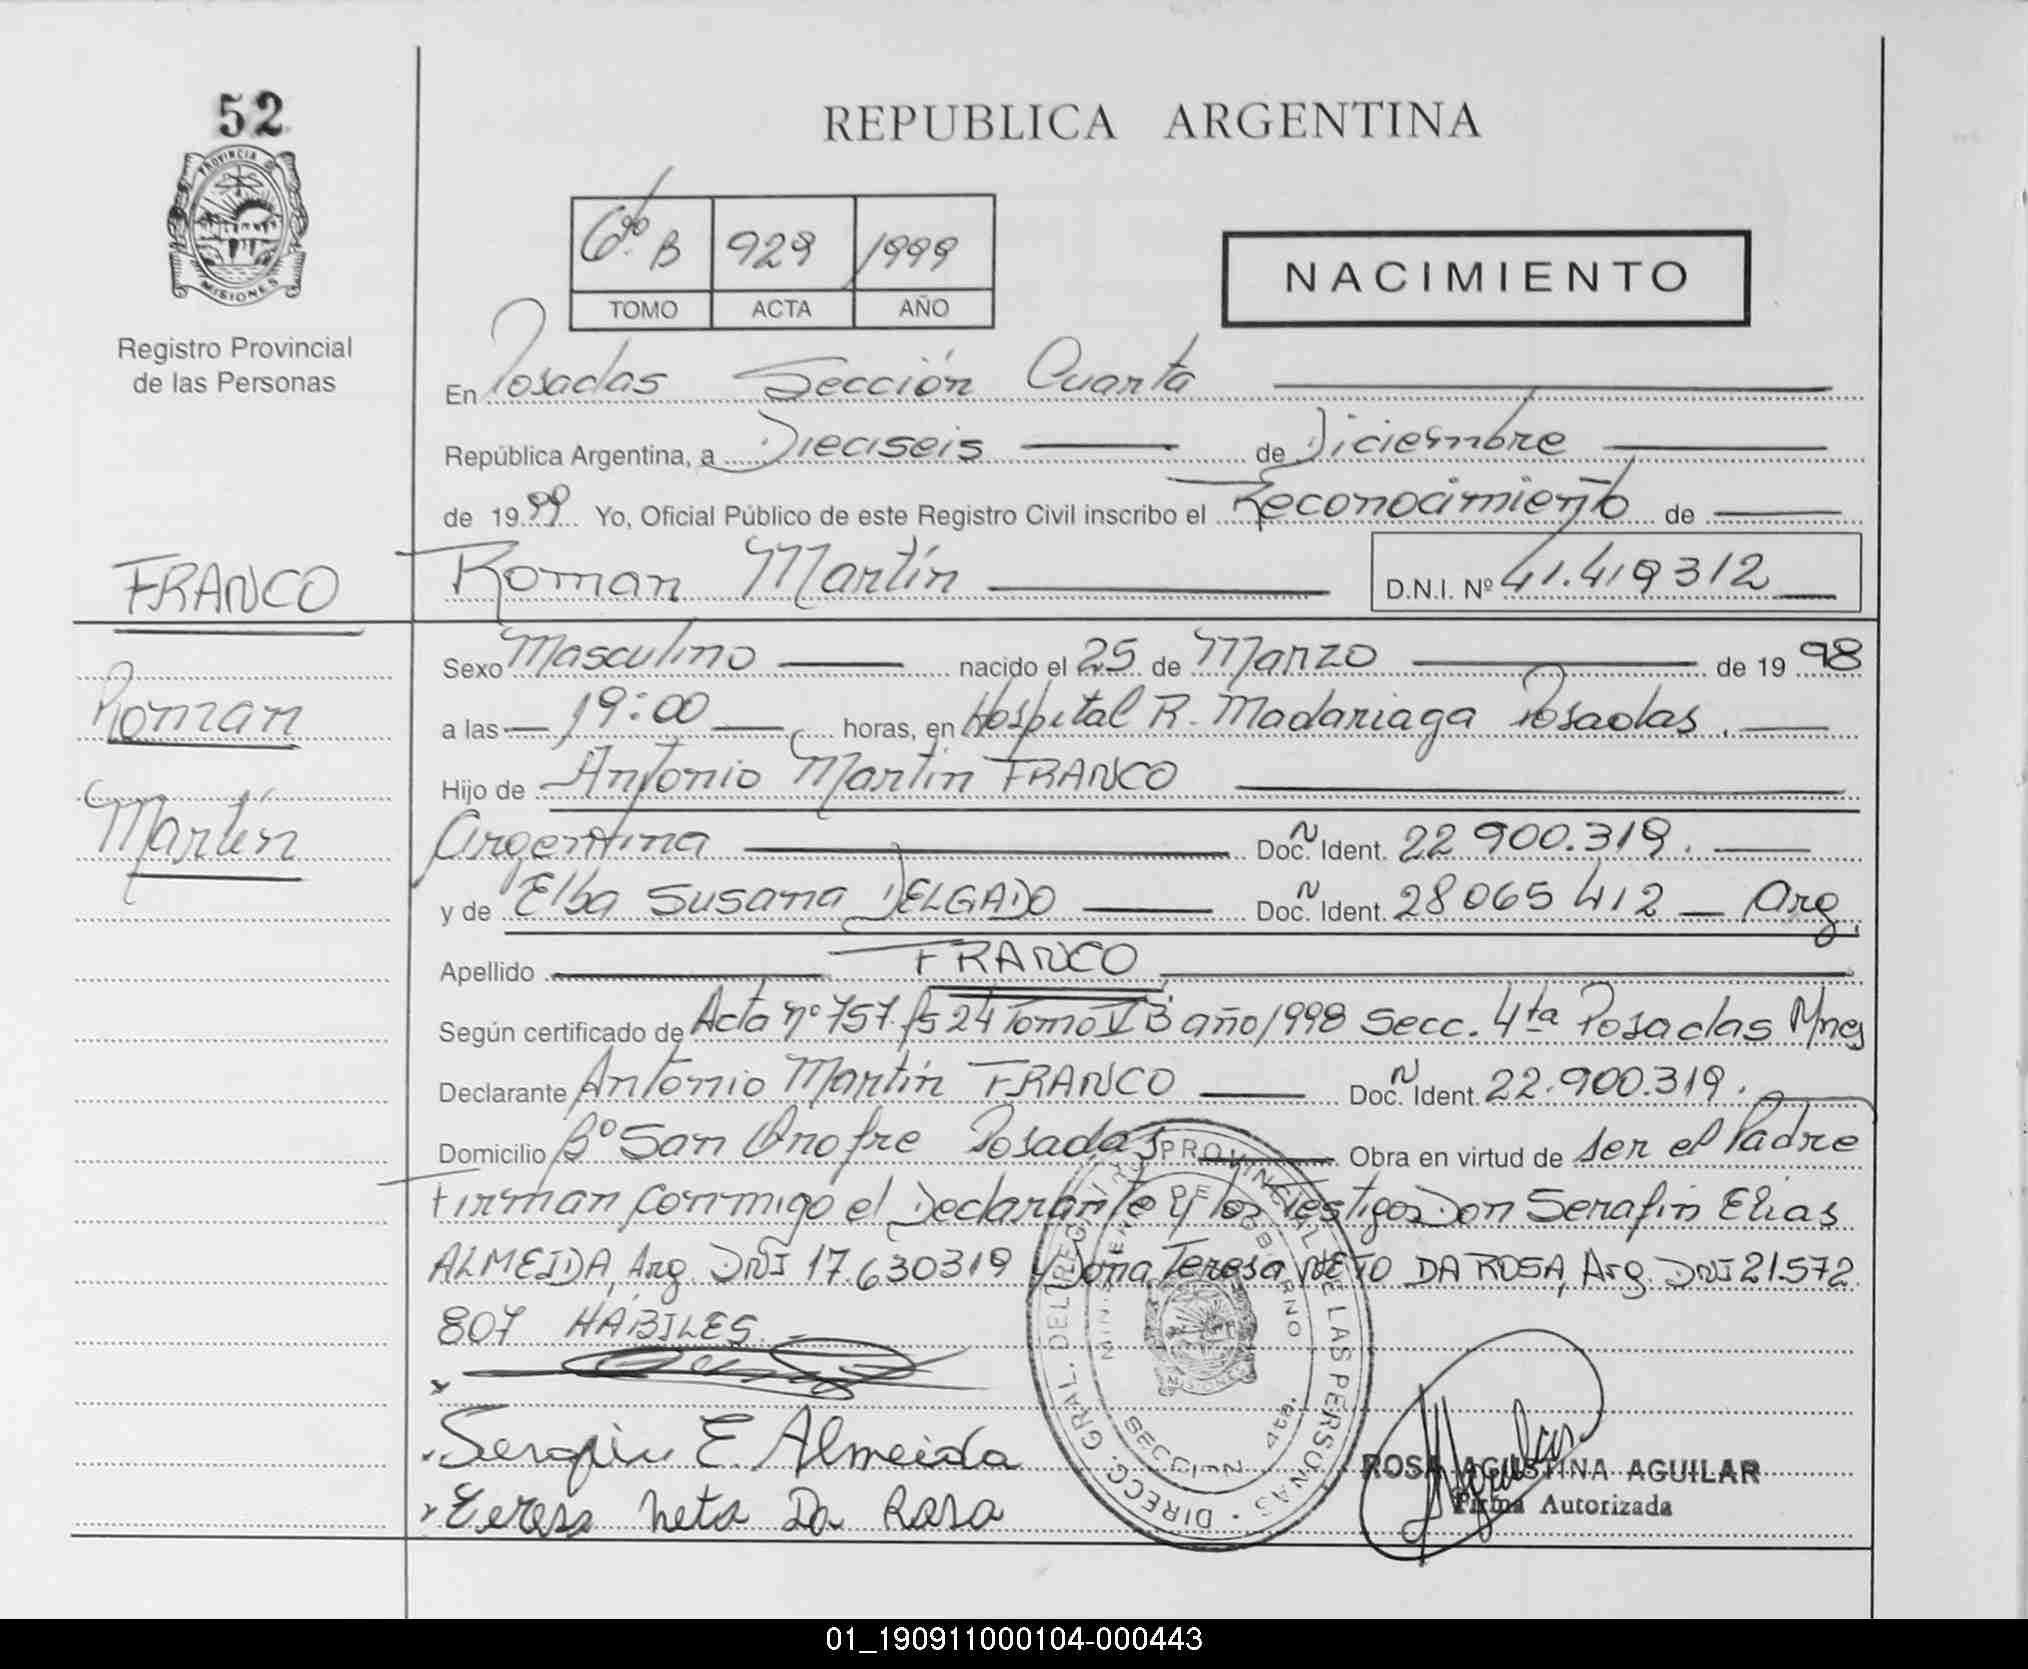 52
PROVINCIA DE
MISIONES
Registro Provincial
de las Personas
REPUBLICA ARGENTINA
6to B 929 1999
TOMO ACTA AÑO
NACIMIENTO
En Posadas Sección Cuarta
República Argentina, a Dieciseis de Diciembre
de 1999 Yo, Oficial Público de este Registro Civil inscribo el Reconocimiento de
FRANCO
Roman Martín D.N.I. Nº 41.419312
Roman
Martín
Sexo Masculino nacido el 25 de Marzo de 1998
a las 19:00 horas, en Hospital R. Madariaga Posadas.
Hijo de Antonio Martin FRANCO
Argentina Doc. Ident. 22 900.319.
y de Elba Susana DELGADO Doc. Ident. 28 065 412 Arg.
Apellido FRANCO
Según certificado de Acta nº 757 fs 24 Tomo V B año 1998 Secc. 4ta Posadas Mnes
Declarante Antonio Martín FRANCO Doc. Ident. 22.900.319.
Domicilio Bº San Onofre Posadas Obra en virtud de ser el Padre
Firman conmigo el Declarante y los Testigos Don Serafin Elias
ALMEIDA, Arg. DNI 17.630319 y Doña Teresa NETO DA ROSA, Arg. DNI 21.572
807 HABILES.
Serafin E. Almeida
Teresa Neta Da Rosa
DIRECC. GRAL. DEL REGISTRO PROVINCIAL DE LAS PERSONAS
MINISTERIO DE GOBIERNO
MISIONES
SECCION 4ta.
ROSA AGUSTINA AGUILAR
Firma Autorizada
01_190911000104-000443